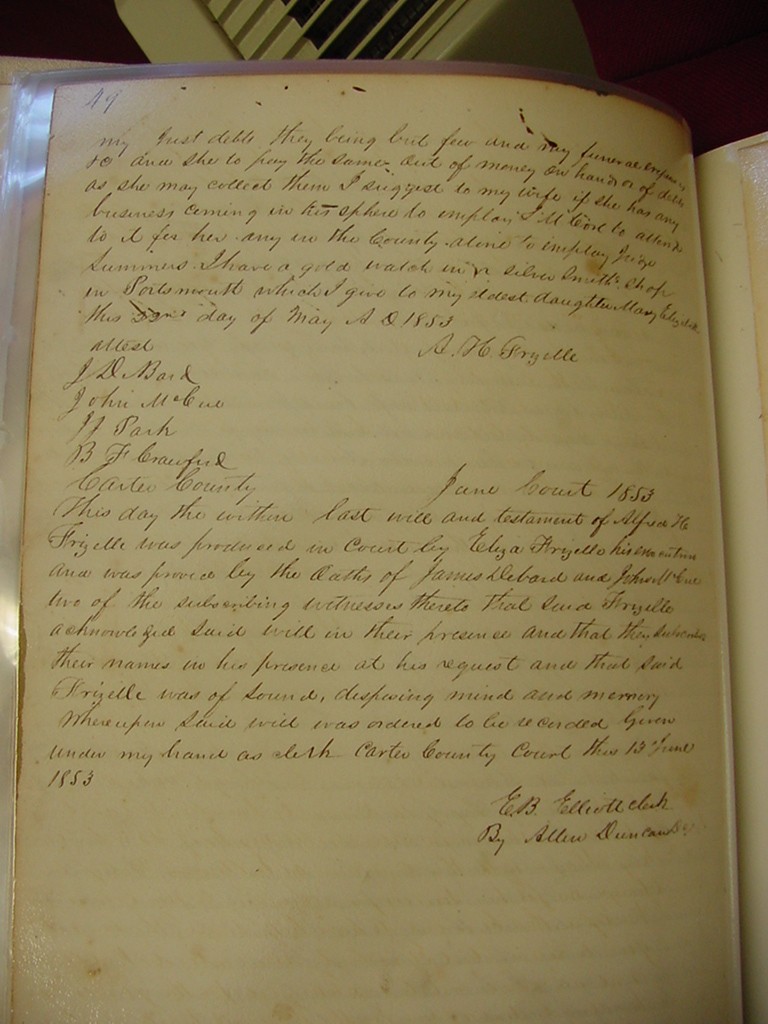 49
my Just debts they being but few and my funeral expenses
&c and she to pay the same out of money on hand or of debts
as she may collect them I suggest to my wife if she has any
business coming in his sphere to employ to attend
to it for her any in the County alone to employ Judge
Summers I have a gold watch in a silver Smiths shop
in Portsmouth which I give to my eldest daughter Mary Elizabeth
this day of May A D 1853
Attest A. H. Frizelle
J D Bard
John McCue
J J Park
B F Crawford
Carter County June Court 1853
This day the within last will and testament of Alfred H
Frizelle was produced in Court by Eliza Frizelle his executrix
and was proved by the Oaths of James Debard and John McCue
two of the subscribing witnesses thereto that said Frizelle
acknowledged said will in their presence and that they subscribed
their names in his presence at his request and that said
Frizelle was of sound, disposing mind and memory
Whereupon said will was ordered to be recorded Given
under my hand as clerk Carter County Court this 13th June
1853
E.B. Elliott clerk
By Allen Duncan DC